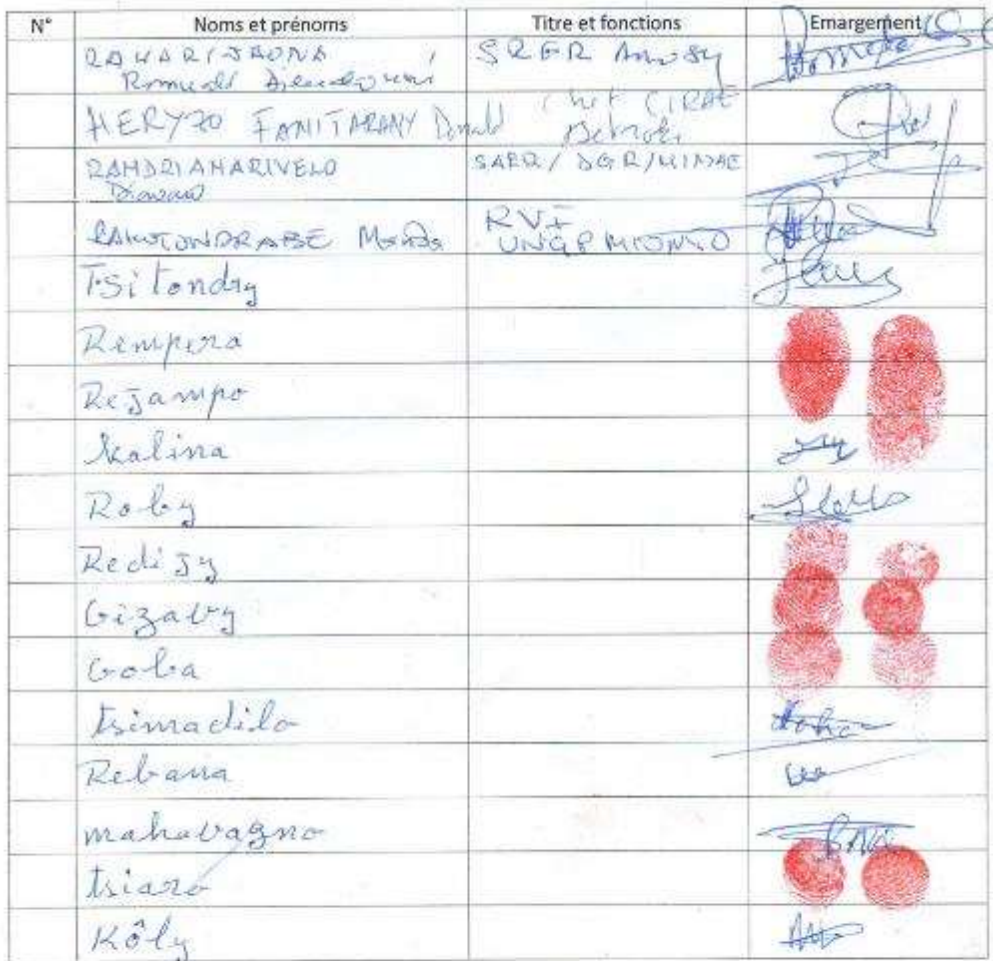 N° Noms et prénoms Titre et fonctions Emargement
RAHARIJAONA SRGR Anosy
Romuald
HERYZO FANITARANY Donald chef CIRAE
Betroka
RANDRIANARIVELO SAER/DGR/MINAE
RAKOTONDRABE RVF
UNGP MIONJO
Tsitondry
Rempera
Rejampo
Kalina
Roby
Redijy
Gizavy
Goba
tsimadilo
Rebana
mahavagno
tsiaro
Kôly